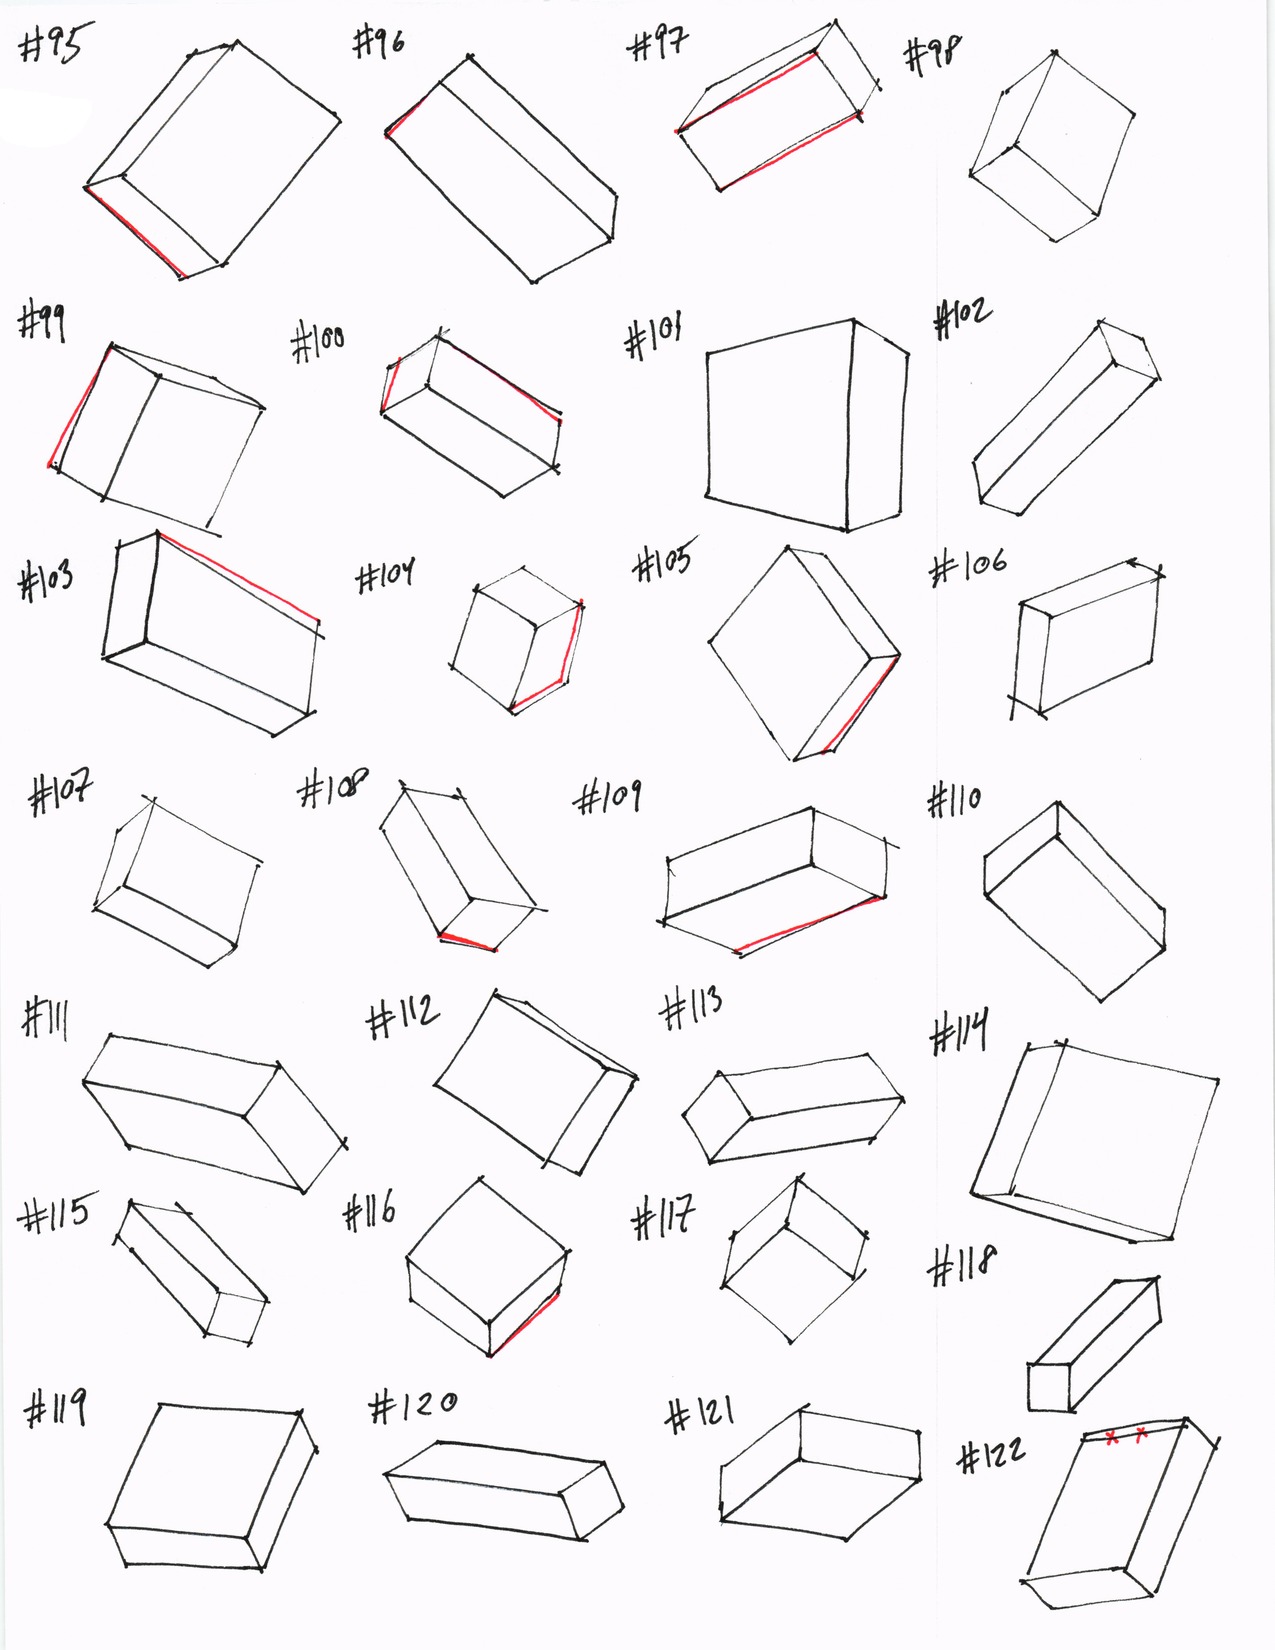 #95 #96 #97 #98
#99 #100 #101 #102
#103 #104 #105 #106
#107 #108 #109 #110
#111 #112 #113 #114
#115 #116 #117 #118
#119 #120 #121 #122